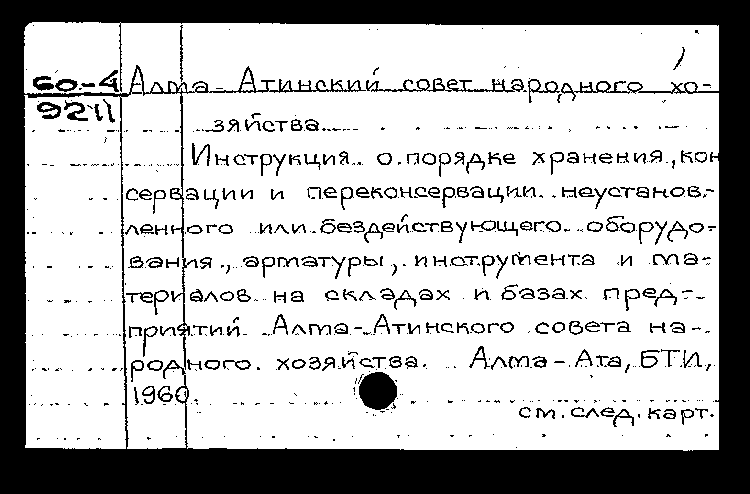 60-4 Алма-Атинский совет народного хо-
9211 зяйства
Инструкция о порядке хранения, кон
сервации и переконсервации неустанов-
ленного или бездействующего оборудо-
вания, арматуры, инструмента и ма-
териалов на складах и базах пред-
приятий Алма-Атинского совета на-
родного хозяйства. Алма-Ата, БТИ,
1960.
см. след. карт.